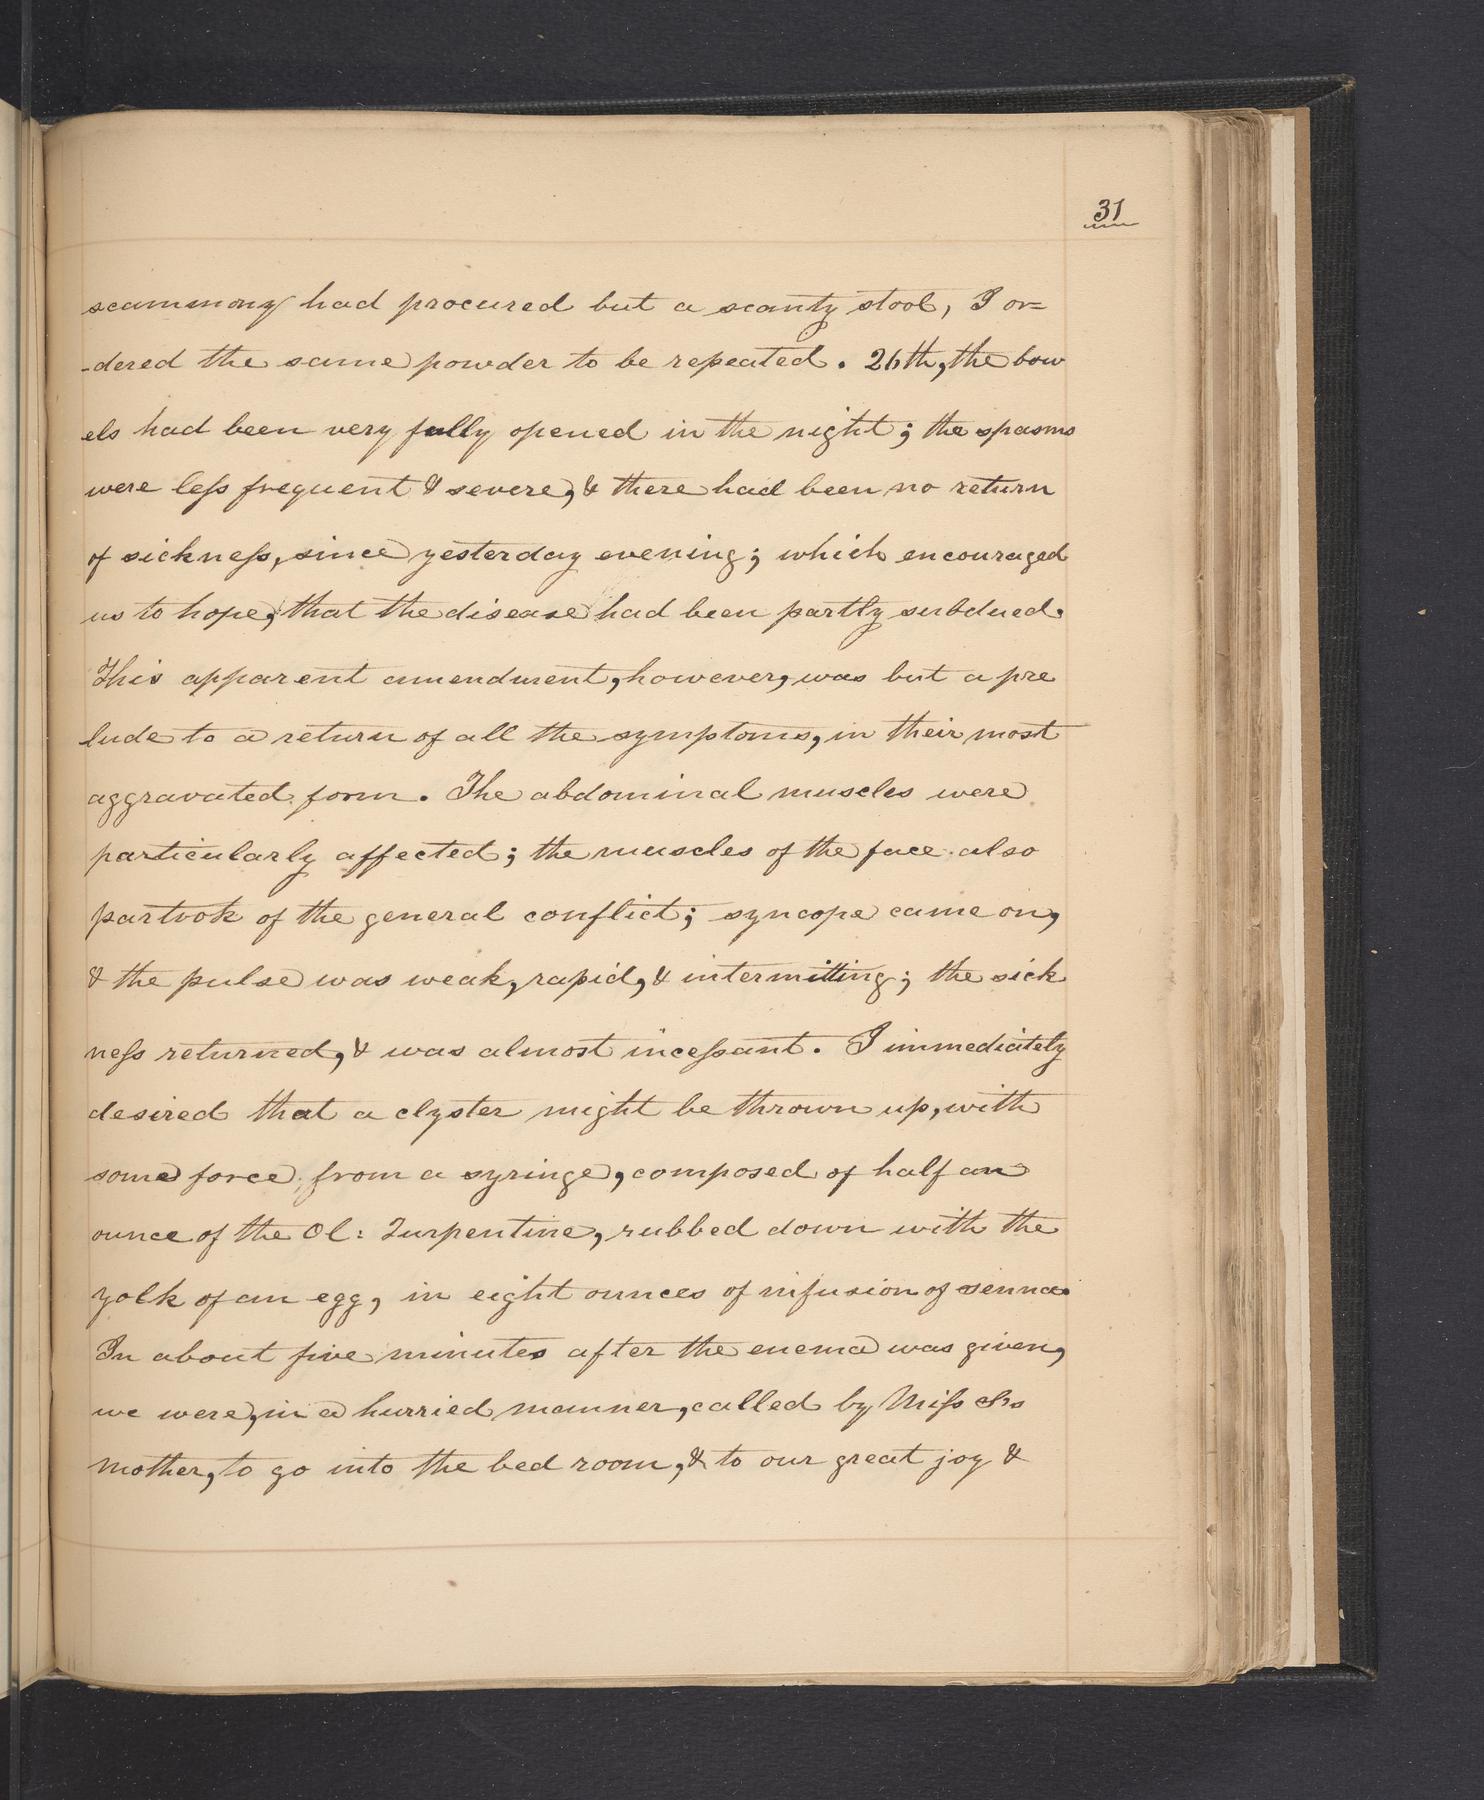 31
scammony had procured but a scanty stool, I or=
-dered the same powder to be repeated. 26th, the bow
els had been very fully opened in the night; the spasms
were leſs frequent & severe, & there had been no return
of sickneſs, since yesterday evening; which encouraged
us to hope, that the disease had been partly subdued.
This apparent amendment, however, was but a pre
lude to a return of all the symptoms, in their most
aggravated form. The abdominal muscles were
particularly affected; the muscles of the face also
partook of the general conflict; syncope came on,
& the pulse was weak, rapid, & intermitting; the sick
neſs returned, & was almost inceſsant. I immediately
desired that a clyster might be thrown up, with
some force, from a syringe, composed of half an
ounce of the Ol: Turpentine, rubbed down with the
yolk of an egg, in eight ounces of infusion of senna.
In about five minutes after the enema was given,
we were, in a hurried manner, called by Miſs
mother, to go into the bed room, & to our great joy &